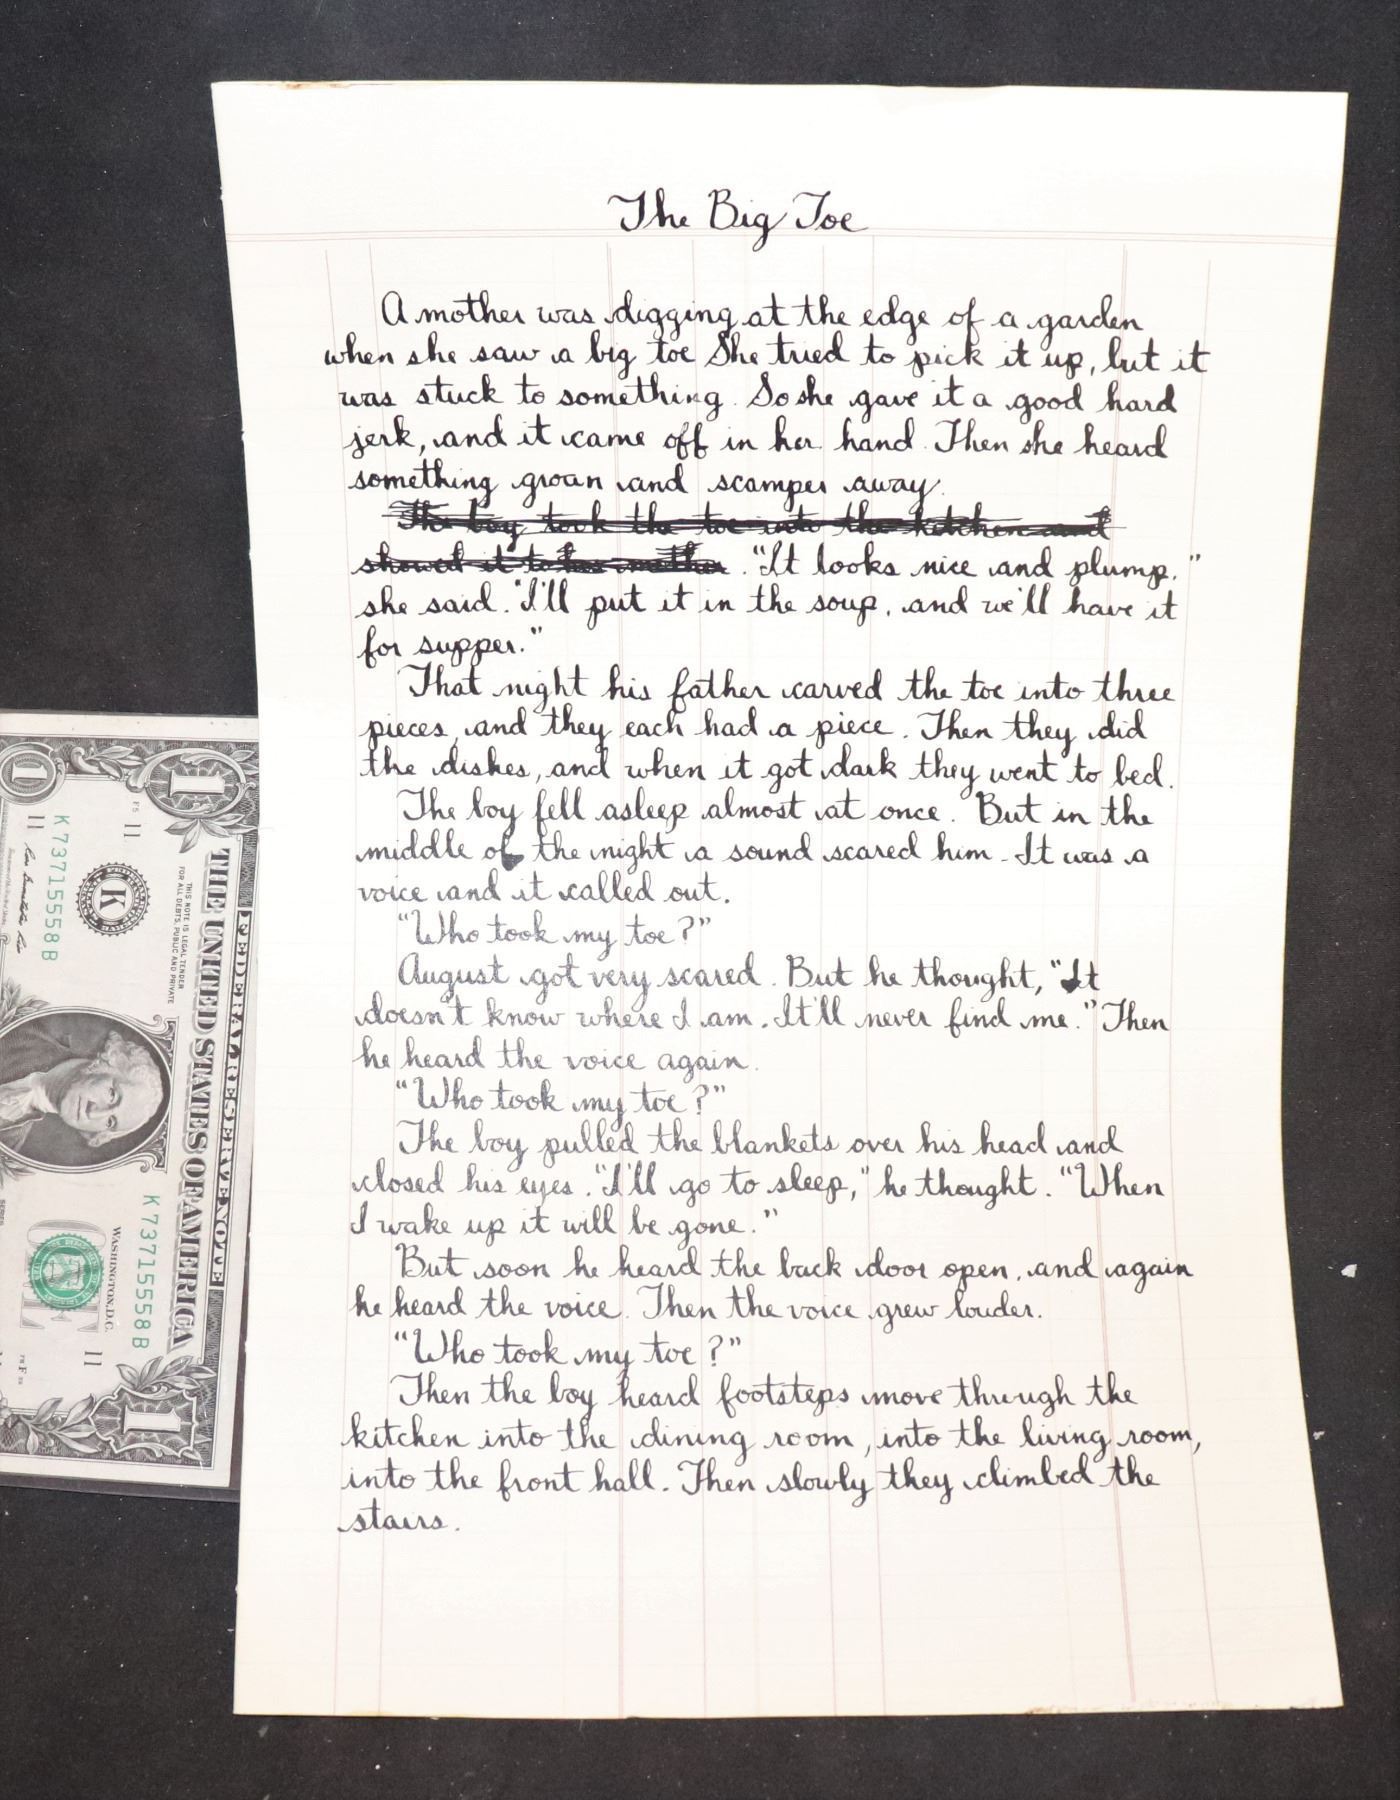 The Big Toe
A mother was digging at the edge of a garden
when she saw a big toe She tried to pick it up, but it
was stuck to something. So she gave it a good hard
jerk, and it came off in her hand. Then she heard
something groan and scamper away.
The boy took the toe into the kitchen and
showed it to his mother. "It looks nice and plump,"
she said. "I'll put it in the soup, and we'll have it
for supper."
That night his father carved the toe into three
pieces, and they each had a piece. Then they did
the dishes, and when it got dark they went to bed.
The boy fell asleep almost at once. But in the
middle of the night a sound scared him. It was a
voice and it called out.
"Who took my toe?"
August got very scared. But he thought, "It
doesn't know where I am. It'll never find me." Then
he heard the voice again.
"Who took my toe?"
The boy pulled the blankets over his head and
closed his eyes. "I'll go to sleep," he thought. "When
I wake up it will be gone."
But soon he heard the back door open, and again
he heard the voice. Then the voice grew louder.
"Who took my toe?"
Then the boy heard footsteps move through the
kitchen into the dining room, into the living room,
into the front hall. Then slowly they climbed the
stairs.
FEDERAL RESERVE NOTE
THE UNITED STATES OF AMERICA
THIS NOTE IS LEGAL TENDER
FOR ALL DEBTS, PUBLIC AND PRIVATE
K 73715558 B
K 73715558 B
WASHINGTON, D.C.
K
11
11
11
1
1
1